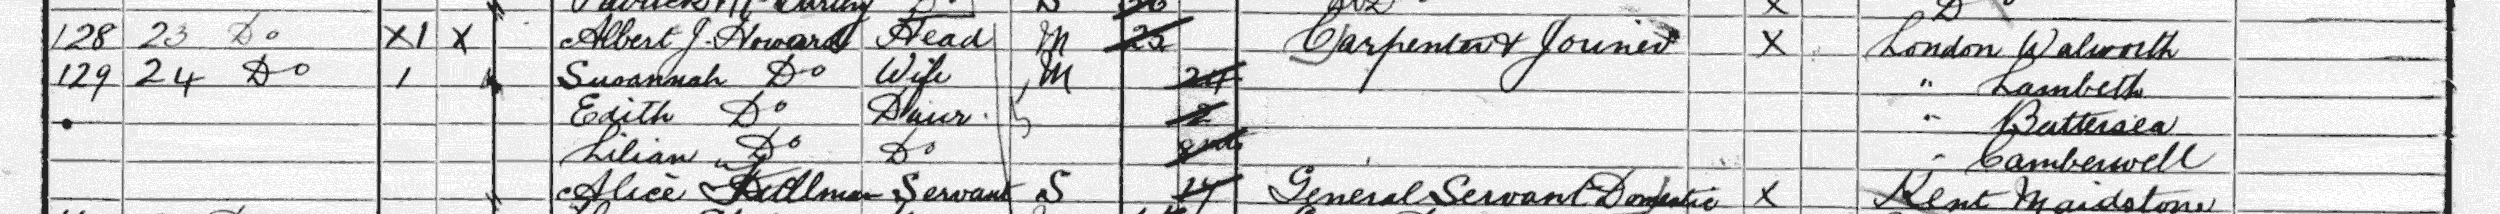 128 23 Do X1 X Albert J. Howard Head M 25 Carpenter & Joiner X London Walworth
129 24 Do 1 Susannah Do Wife M 24 " Lambeth
Edith Do Daur. 2 " Battersea
Lilian Do Do " Camberwell
Alice Servant S 17 General Servant Domestic X Kent Maidstone